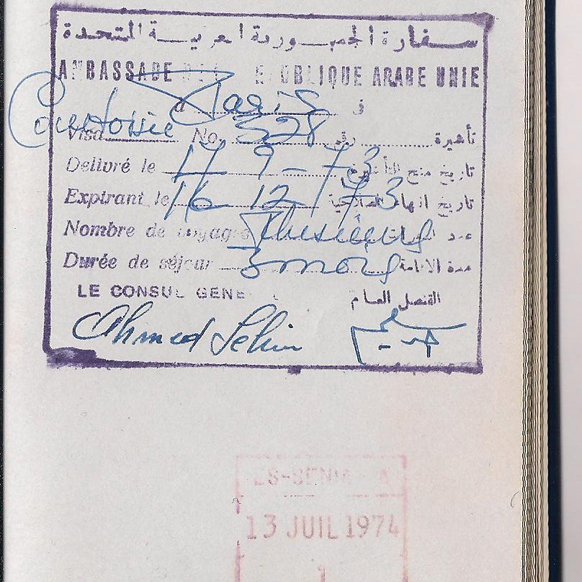 سفارة الجمهورية العربية المتحدة
AMBASSADE REPUBLIQUE ARABE UNIE
à Paris في
Courtoisie
Visa No. 328 رقم تأشيرة
Delivré le 17-9-73 تاريخ منح التأشيرة
Expirant le 16-12-73 تاريخ انتهاء الصلاحية
Nombre de voyages Plusieurs عدد
Durée de séjour 3 mois مدة الاقامة
LE CONSUL GENE القنصل العام
Ahmed Selim
ES-SENI A
13 JUIL 1974
1